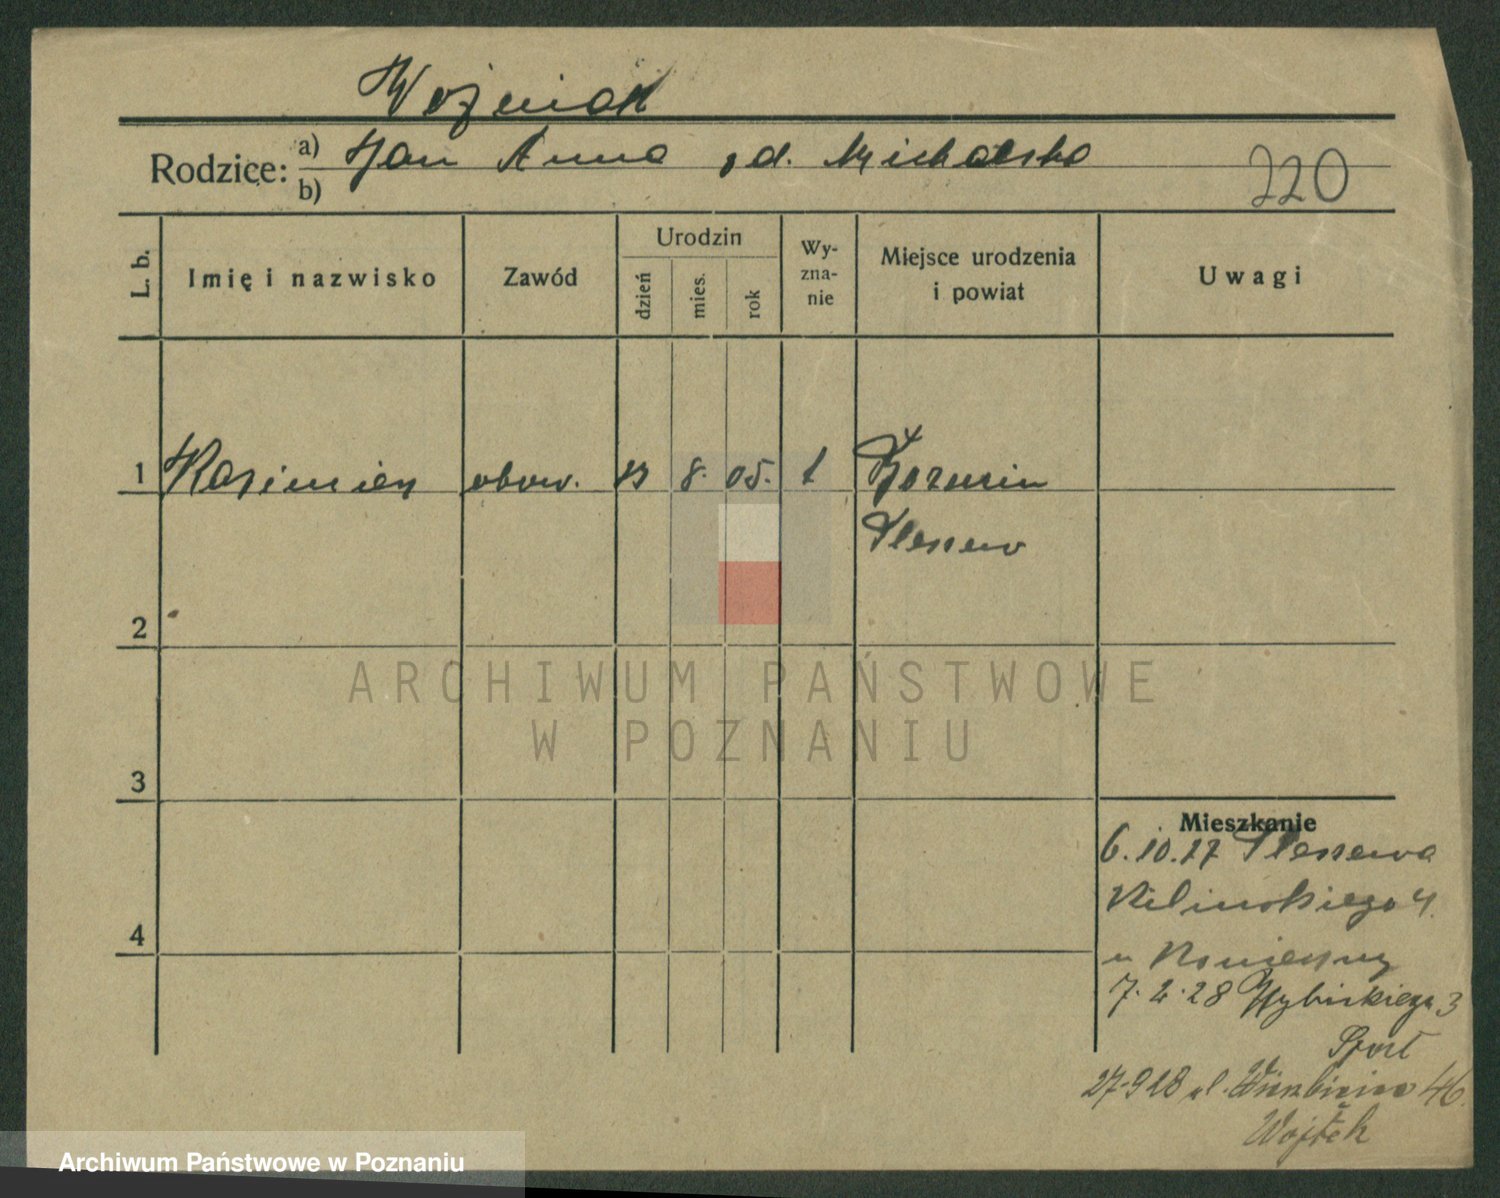 Woźniak
Rodzice: a) Jan Anna z d. Michalska
b)
220
L. b.
Imię i nazwisko
Zawód
Urodzin
dzień
mies.
rok
Wy-
zna-
nie
Miejsce urodzenia
i powiat
Uwagi
1 Kazimierz obow. 8. 05.
Pleszew
2
3
4
Mieszkanie
6.10.27 Pleszewa
Kilinskiego 4.
u Konieczny
7.2.28 Wybickiego 3
27.9.28 ul. Wierzbięcice 46.
Wojtek
ARCHIWUM PAŃSTWOWE
W POZNANIU
Archiwum Państwowe w Poznaniu